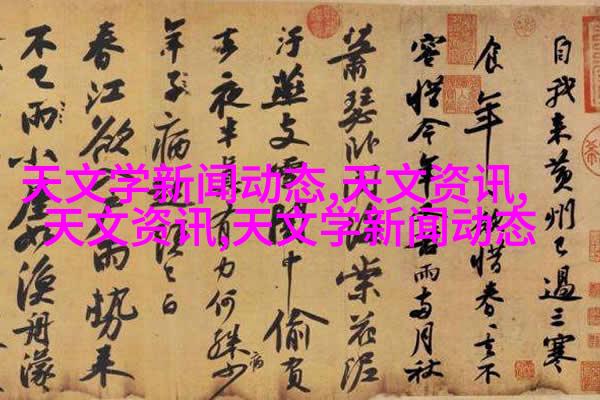 自我来黄州已過三寒
食年々欲惜春々去不
容惜今年又苦雨兩月秋
蕭瑟卧聞海棠花泥
汙燕支雪闇中偷負
去夜半真有力何殊少
病
年子病起須已白
春江欲入户雨勢来
不已雨小屋如漁舟濛
天文学新闻动态,天文资讯,
天文资讯,天文学新闻动态